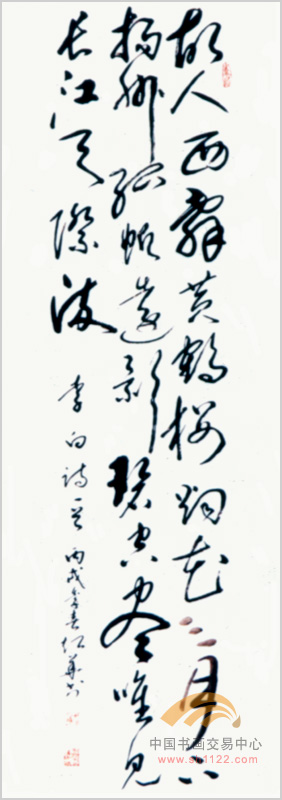 故人西辞黄鹤楼烟花三月下
扬州孤帆远影碧空尽唯见
长江天际流
李白诗一首 丙戌
中国书画交易中心